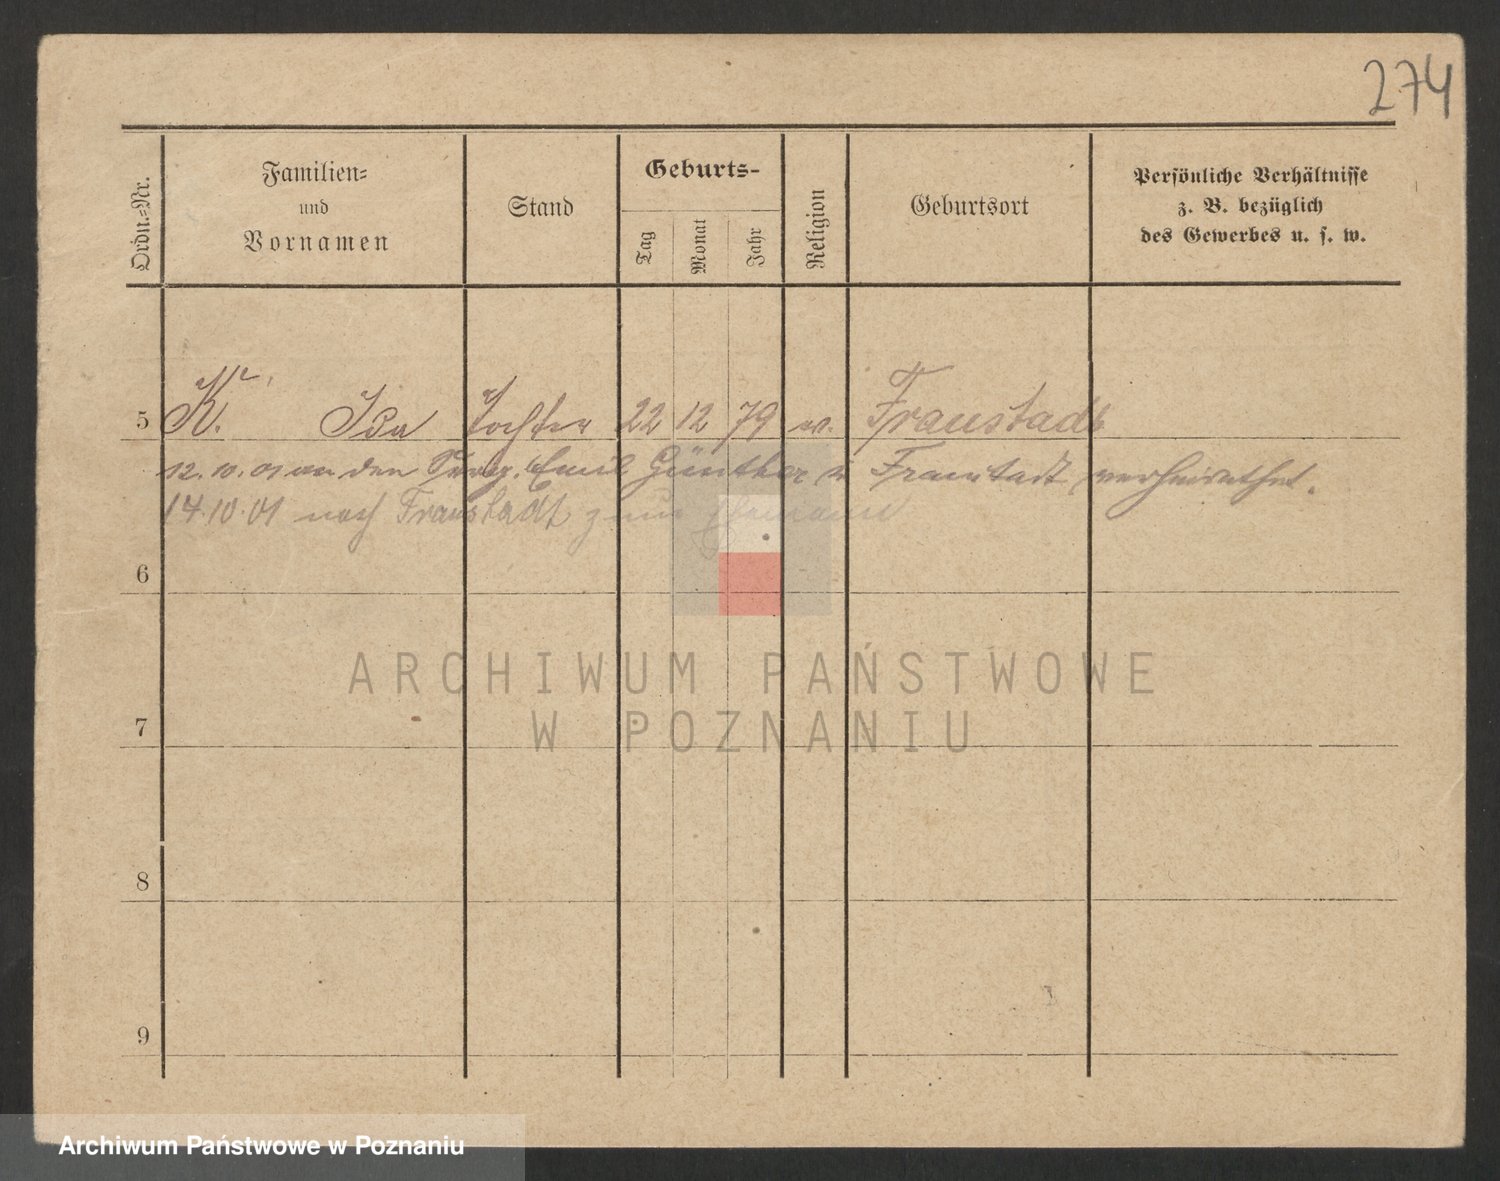 274
Ordn.=Nr.
Familien=
und
Vornamen
Stand
Geburts-
Tag
Monat
Jahr
Religion
Geburtsort
Persönliche Verhältnisse
z. B. bezüglich
des Gewerbes u. s. w.
5 K. Ida Tochter 22 12 79 ev. Fraustadt
12.10.01 an den Emil Günther in Fraustadt verheirathet.
14.10.01 nach Fraustadt zum Ehemann
6
7
8
9
ARCHIWUM PAŃSTWOWE
W POZNANIU
Archiwum Państwowe w Poznaniu